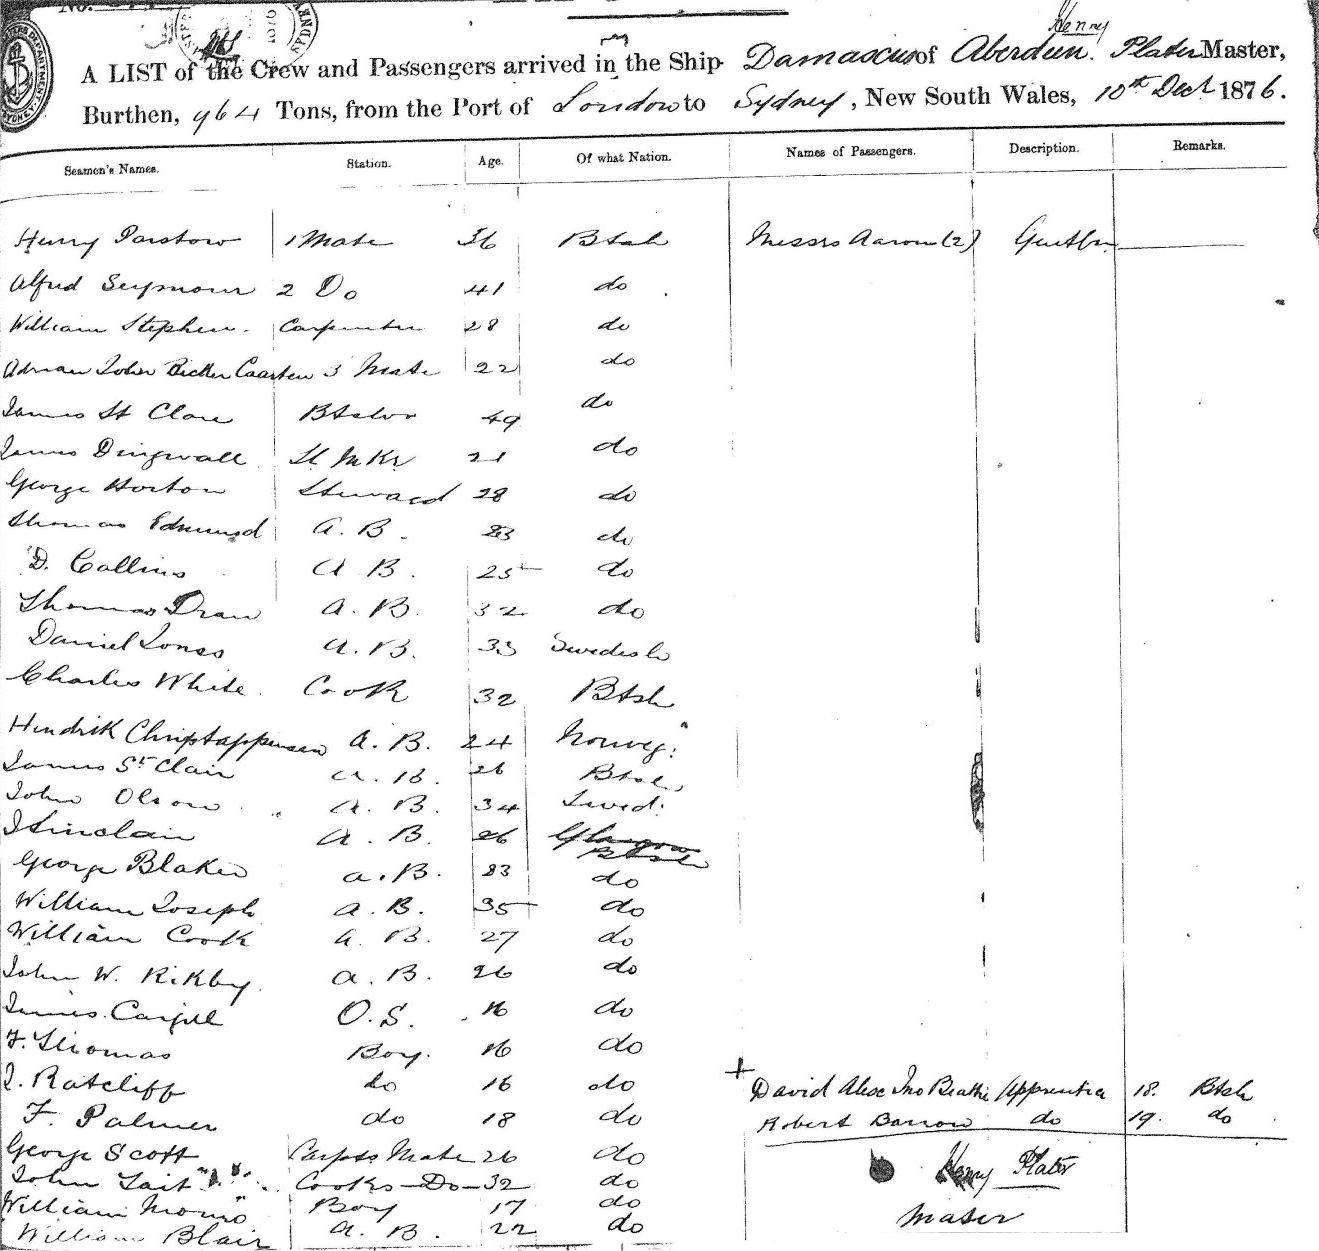 No.
Henry
A LIST of the Crew and Passengers arrived in the Ship Damascus of Aberdeen. Plater Master,
Burthen, 964 Tons, from the Port of London to Sydney, New South Wales, 10th Decr 1876.
Seamen's Names. Station. Age. Of what Nation. Names of Passengers. Description. Remarks.
Henry Parstow 1 Mate 36 Btsh Messrs Aarons (2) Gentlm
Alfred Seymour 2 Do 41 do
William Stephen. Carpenter 28 do
Adrian John Bicker Caarten 3 Mate 22 do
James St Clare Btsw 49 do
James Dingwall Sl Mkr 21 do
George Horton Steward 28 do
Thomas Edmund A. B. 23 do
D. Collins A B. 25 do
Thomas Dran A. B. 32 do
Daniel Jones A. B. 33 Swedish
Charles White. Cook 32 Btsh
Hendrik A. B. 24 Norweg:
James St Clair A. B. 26 Btsh
John Olson A. B. 34 Swed:
J Sinclair A. B. 26 Glasgow Btsh
George Blaker A. B. 33 do
William Joseph A. B. 35 do
William Cook A. B. 27 do
John W. Rikby. A. B. 26 do
James Cargill O. S. 16 do
F. Thomas Boy. 16 do
J. Ratcliff do 16 do David Alex Jno Beattie Apprentice 18. Btsh
F. Palmer do 18 do Robert Barrow do 19. do
George Scott Carps Mate 26 do Henry Plater
John Tait Cooks Do 32 do
William Morris Boy 17 do Master
William Blair A. B. 22 do